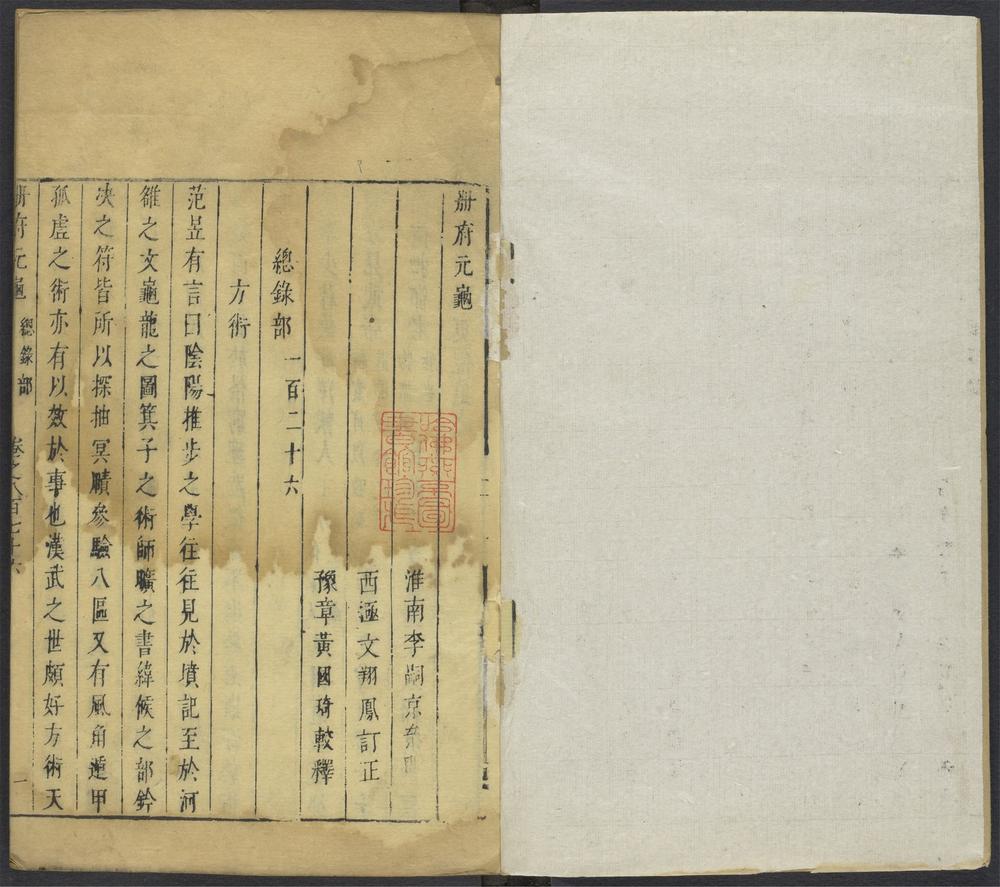 册府元龜
淮南李嗣京
西極文翔鳳訂正
豫章黃國琦較釋
總錄部 一百二十六
方術
范昱有言曰陰陽推步之學往往見於墳記至於河
雒之文龜龍之圖箕子之術師曠之書緯候之部鈐
决之符皆所以探抽冥賾參驗八區又有風角遁甲
孤虛之術亦有以效於事也漢武之世頗好方術天
册府元龜 總錄部 卷之八百七十六 一